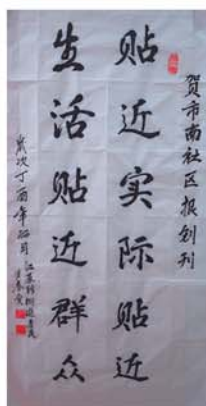 贺市南社区报创刊
贴近实际贴近
生活贴近群众
岁次丁酉年